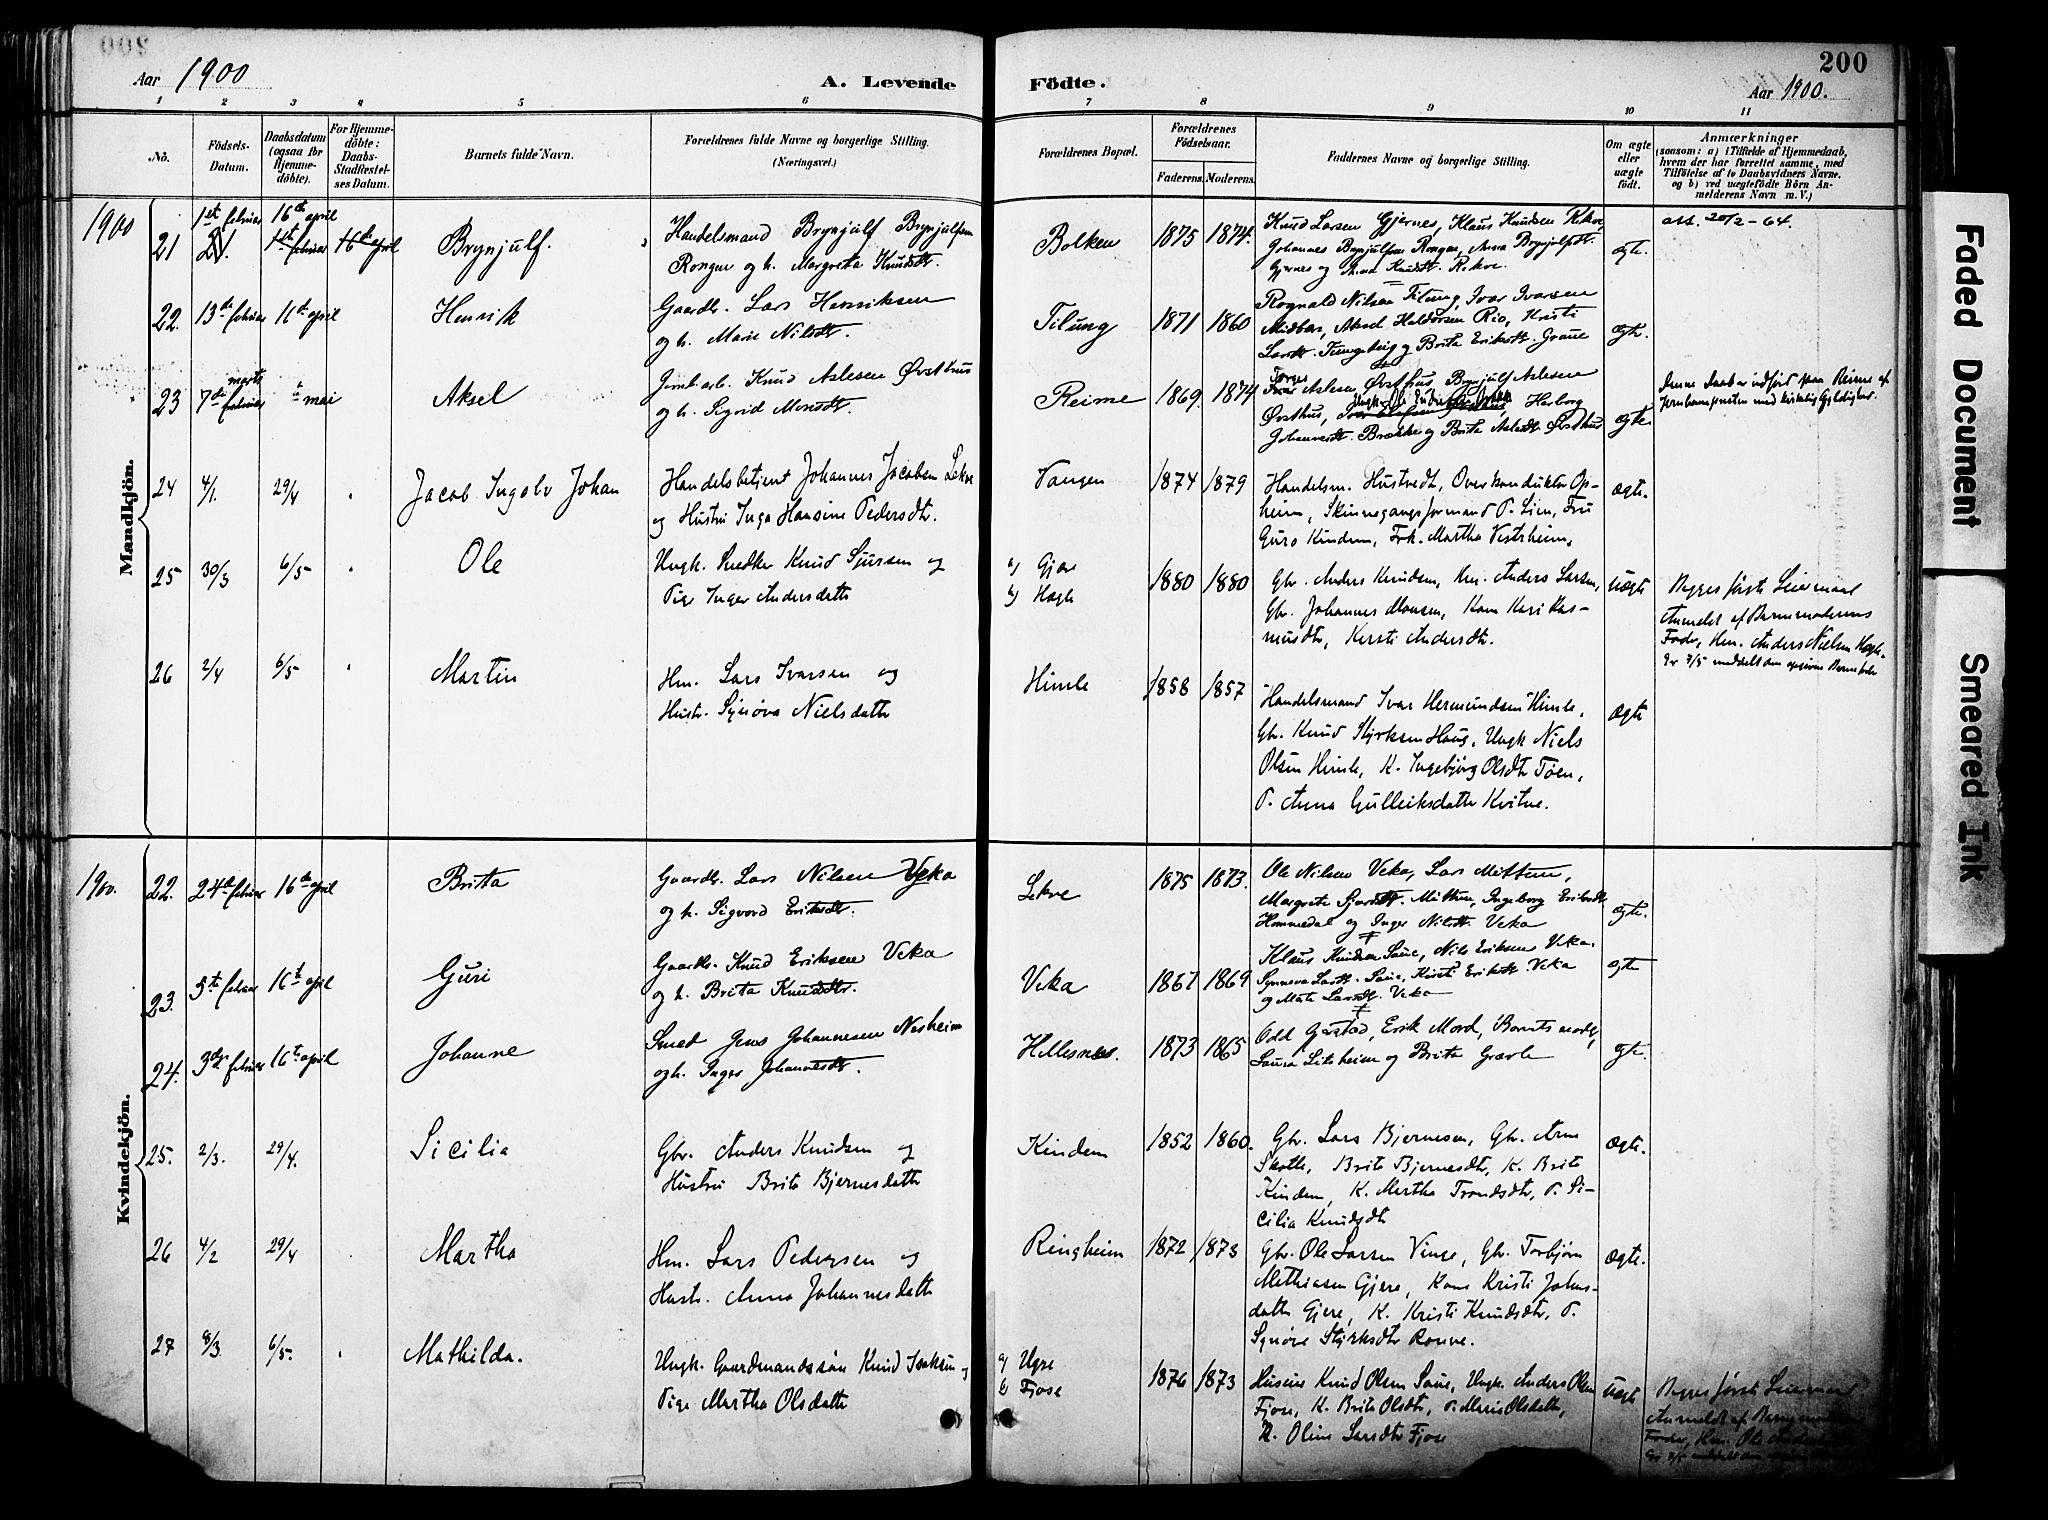 200
Aar 1900
A. Levende
Födte.
Aar 1900.
1 2 3 4 5 6 7 8 9 10 11
No.
Födsels-
Datum.
Daabsdatum
(ogsaa for
Hjemme-
döbte).
For Hjemme-
döbte:
Daabs-
Stadfæstel-
ses Datum.
Barnets fulde Navn.
Forældrenes fulde Navne og borgerlige Stilling.
(Næringsvei.)
Forældrenes Bopæl.
Forældrenes
Födselsaar.
Faderens. Moderens.
Faddernes Navne og borgerlige Stilling.
Om ægte
eller
uægte
født.
Anmærkninger
(saasom: a) i Tilfælde af Hjemmedaab,
hvem der har forrettet samme, med
Tilföielse af to Daabsvidners Navne,
og b) ved uægtefödte Börn An-
melderens Navn m. V.)
Mandkjön.
1900
21 1st februar 16th april 1st februar 16th april Brynjulf.
Handelsmand Brynjulf Brynjulfsen
Rongve og h. Margreta Knudsdtr.
Bolken 1875 1874.
Knud Larsen Gjernes, Klaus Knudsen Rekve,
Johannes Brynjulfsen Rongve, Anna Brynjulfsdtr.
Gjernes og Anna Knudsdtr. Rekve.
ægte.
att. 20/2-64.
22. 13de februar 16th april Henrik
Gaardbr. Lars Henriksen
og h. Marie Nilsdtr.
Tilung 1871 1860
Rognald Nilsen Tilung, Ivar Ivarsen
Midbø, Aksel Haldorsen Rio, Kristi
Larsdtr. Tungeteig og Brita Eriksdtr. Graue
ægte.
23 7de marts mai Aksel
Jernb.arb. Knud Aslesen Øvsthus
og h. Sigrid Monsdtr.
Reime 1869. 1874
Aslesen Øvsthus, Brynjulf Aslesen
Øvsthus, Herborg
Johannesdtr. Brække og Brita Aslesdtr. Øvsthus
ægte.
Denne Daab er indført paa Reime af
24 4/1. 29/4 Jacob Ingolv Johan
Handelsbetjent Johannes Jacobsen Lekve
og Hustru Inga Hansine Pedersdtr.
Vangen 1874 1879
Handelsm. Hustvedt, Overkonduktør Op-
heim, Skinnegangsformand P. Lien, Fru
Guro Kindem, Frk. Martha Vestrheim,
ægte.
25 30/3 6/5 Ole
Ungk. Snedker Knud Sjursen og
Pige Inger Andersdatter
a) Gjære
b) Hægle
1880 1880
Gbr. Anders Knudsen, Hm. Anders Larsen,
Gbr. Johannes Monsen, Kone Kari Ras-
musdtr, Kersti Andersdtr.
uægte
Begges første Leiermaal
Anmeldt af Barnemoderens
Fader, Hm. Anders Nielsen Hægle.
Gr. 7/5 meddelt den opgivne Barnefader
26 2/4 6/5 Martin
Hm. Lars Ivarsen og
Hustr. Synøva Nielsdatter
Himle 1858 1857
Handelsmand Ivar Hermundsen Himle,
Gbr. Knud Styrksen Haug, Ungk Niels
Olsen Himle, K. Ingebjørg Olsdtr Tøen,
P. Anna Gulleiksdatter Kvitne.
ægte
Kvindekjön.
1900.
22. 24de februar 16de april Britta
Gaardbr. Lars Nilsen Veka
og h. Sigvord Eriksdtr.
Lekve 1875 1873.
Ole Nilsen Veka, Lars Mittun,
Margrete Sjursdtr. Mittun, Ingeborg Eriksdtr
Hommedal og Inger Nilsdtr. Veka
ægte.
23. 5te februar 16de april Guri
Gaardbr. Knud Eriksen Veka
og h. Brita Knudsdtr.
Veka 1867 1869
Klaus Knudsen Saue, Nils Eriksen Veka.
Synneva Larsdtr. Saue, Kirsti Eriksdtr. Veka
og Mate Larsdtr. Veka
ægte
24. 3die februar 16te april Johanne
Smed Jens Johannesen Nesheim
og h. Inger Johannesdtr.
Hellesnes. 1873 1865
Odd Gjerstad, Erik Mord, Barnets moder,
Laura Liteheim og Brita Grævle
ægte.
25. 2/3. 29/4. Sicilia
Gbr. Anders Knudsen og
Hustru Brita Bjørnesdatter
Kindem 1852 1860.
Gbr. Lars Bjørnesen, Gbr. Arne
Skotle, Brita Bjørnesdtr, K. Brita
Kindem, K. Martha Trondsdtr, P. Si-
cilia Knudsdtr
ægte.
26 4/2 29/4 Martha
Hm. Lars Pedersen og
Hustr. Anna Johannesdatter
Ringheim 1872 1873
Gbr. Ole Larsen Vinge, Gbr. Torbjørn
Mathiasen Gjere, Kone Kristi Johns-
datter Gjere, K. Kristi Knudsdtr, P.
Synøve Styrksdtr Ronve.
ægte.
27 8/3. 6/5. Mathilda.
Ungk. Gaardmandssøn Knud Isaksen og
Pige Martha Olsdatter
a) Ugre
b) Fjose
1876 1873
Huseier Knud Olsen Saue, Ungk. Anders Olsen
Fjose, K. Brita Olsdtr, P. Maria Olsdatter,
K. Oline Larsdtr Fjose
uægte
Begges første Leiermaal
Anmeldt af Barnemoderens
Fader, Hm. Ole
Faded Document
Smeared Ink